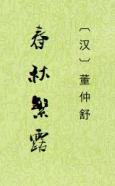 〔汉〕董仲舒
春秋繁露